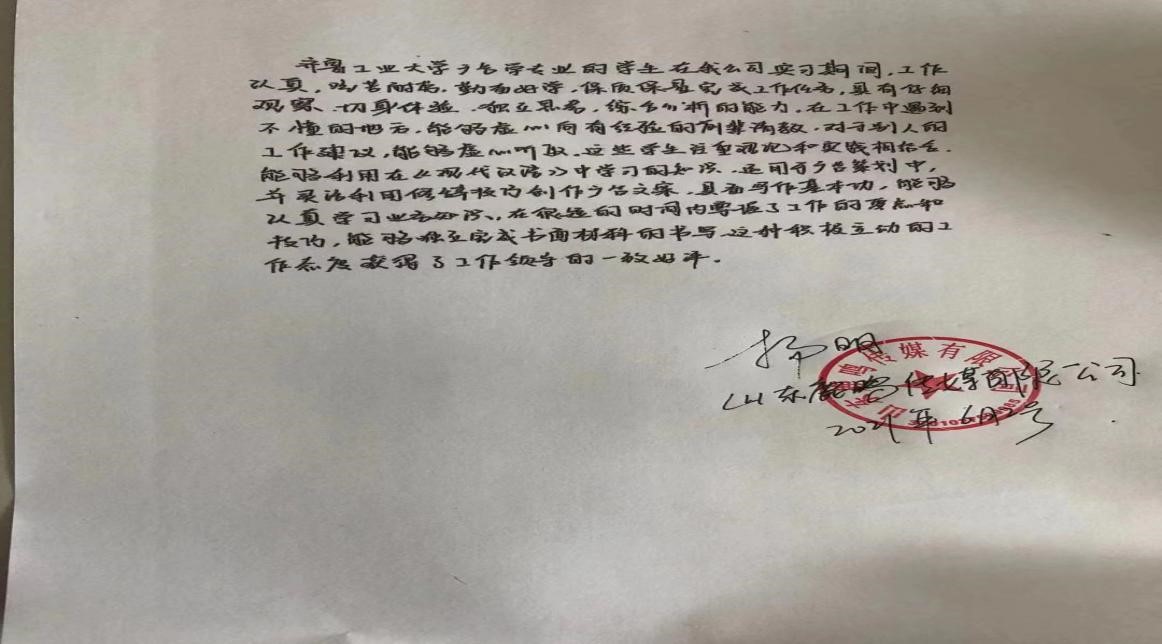 齐鲁工业大学广告学专业的学生在我公司实习期间,工作
认真,吃苦耐劳,勤奋好学,保质保量完成工作任务,具有仔细
观察、切身体验、独立思考、综合分析的能力,在工作中遇到
不懂的地方,能够虚心向有经验的前辈请教,对于别人的
工作建议,能够虚心听取。这些学生注重理论和实践相结合,
能够利用在《现代汉语》中学习的知识,运用于广告策划中,
并灵活利用修辞技巧创作广告文案,具备写作基本功,能够
认真学习业务知识,在很短的时间内掌握了工作的要点和
技巧,能够独立完成书面材料的书写,这种积极主动的工
作态度获得了工作领导的一致好评。
杨明
山东鹿鸣传媒有限公司
2021年6月2号
鹿鸣传媒有限